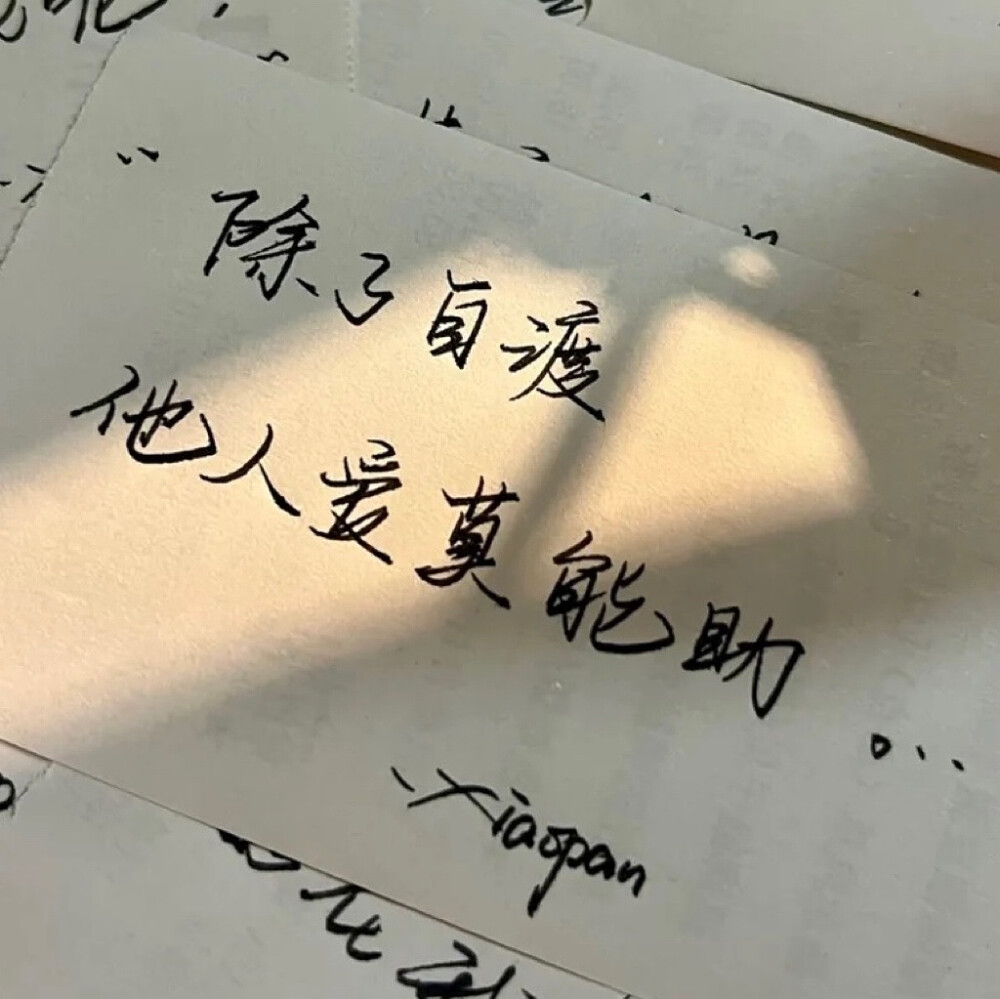 “除了自渡
他人爱莫能助
。..
Xiaopan